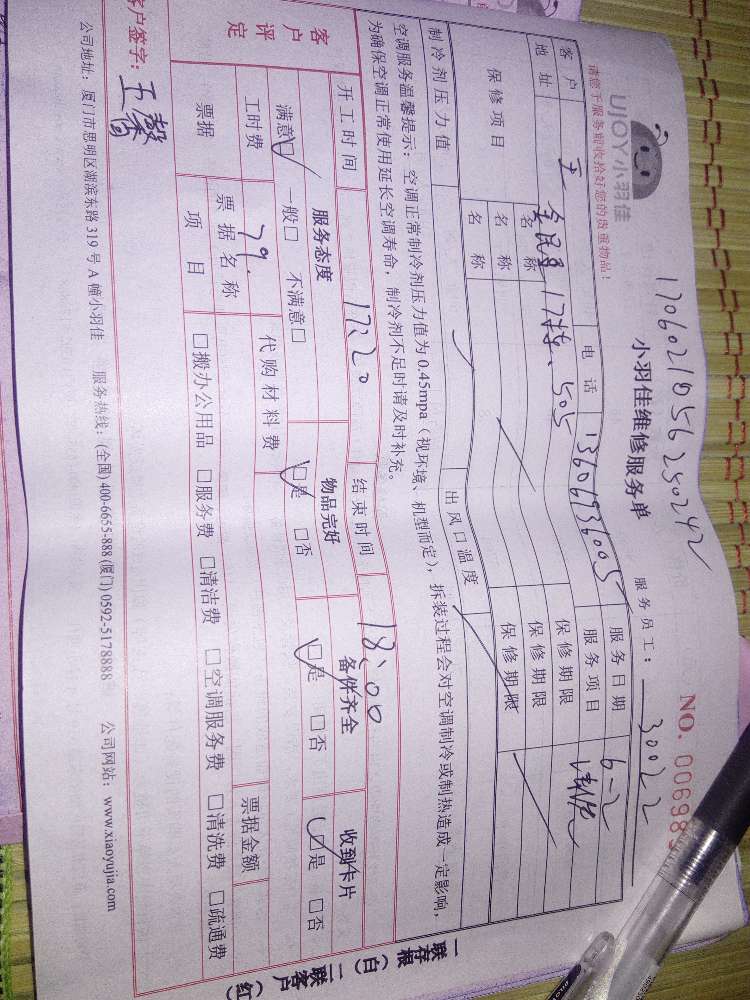 17060218056250242
UJOY小羽佳
小羽佳维修服务单
NO. 00698
请您于服务前收拾好您的贵重物品！
服务员工： 30022
客户 王 电话 13606936005 服务日期 6-2
地址 全民星 17栋、505 服务项目
保修项目 名称 保修期限
名称 保修期限
名称 保修期限
制冷剂压力值 出风口温度
空调服务温馨提示：空调正常制冷剂压力值为0.45mpa（视环境、机型而定），拆装过程会对空调制冷或制热造成一定影响，
为确保空调正常使用延长空调寿命，制冷剂不足时请及时补充。
开工时间 17:20 结束时间 18:00
客户评定 服务态度 物品完好 备件齐全 收到卡片
满意☑ 一般□ 不满意□ ☑是 □否 ☑是 □否 ☑是 □否
工时费 79. 代购材料费
票据 票据名称 票据金额
项目 □搬办公用品 □服务费 □清洁费 □空调服务费 □清洗费 □疏通费
客户签字：王馨
公司地址：厦门市思明区湖滨东路319号A幢小羽佳 服务热线：(全国) 400-6655-888 (厦门) 0592-5178888 公司网站：www.xiaoyujia.com
一联存根（白）二联客户（红）